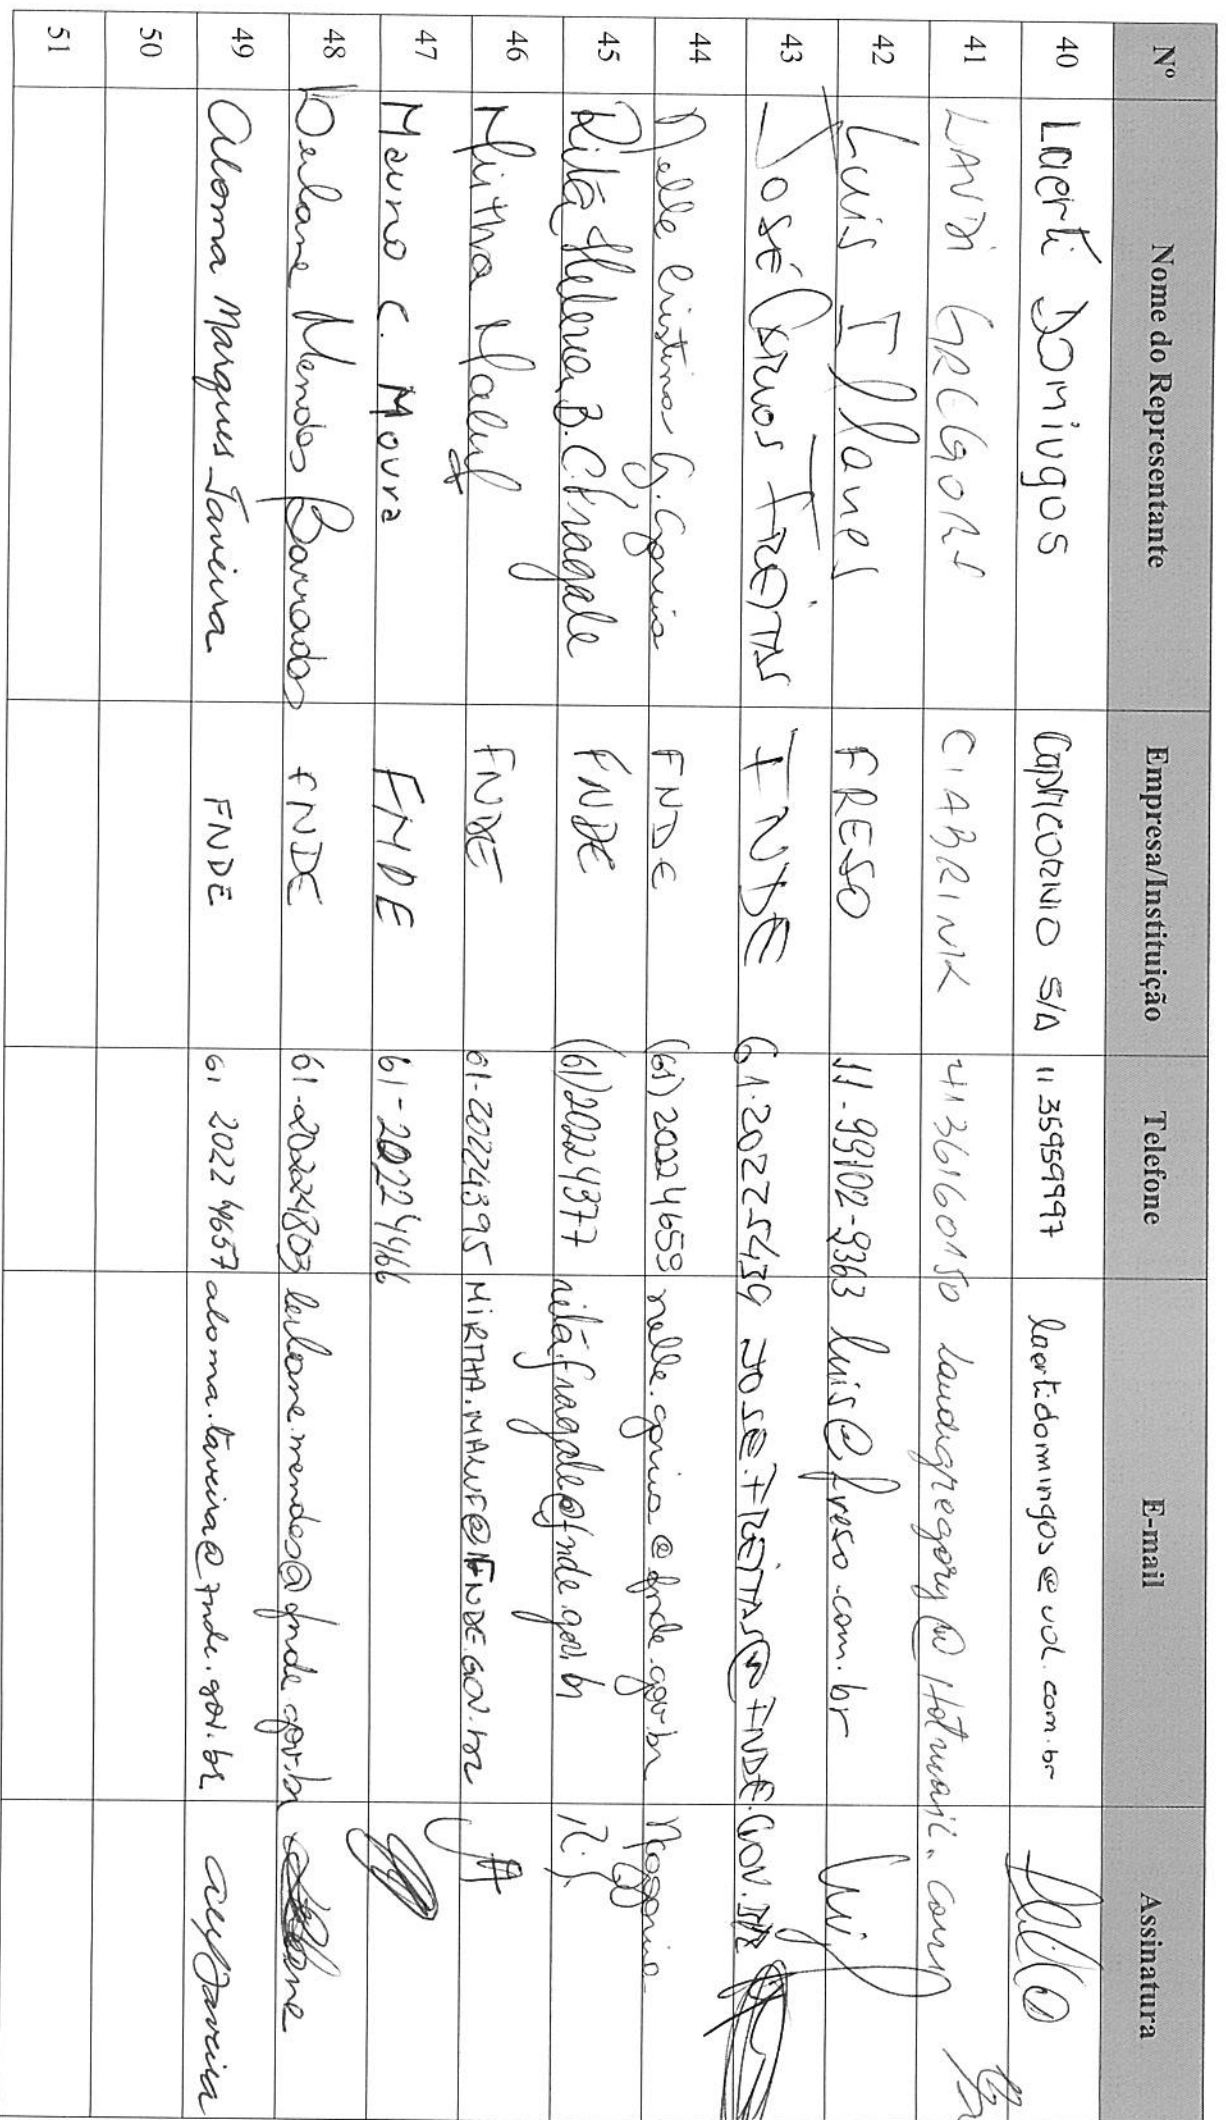 Nº Nome do Representante Empresa/Instituição Telefone E-mail Assinatura
40 Laerti Domingos Capricornio S/A 11 35959997 laertidomingos@uol.com.br
41 LANDI GREGORI CIABRINK 41 36160150 landigregory@Hotmail.com
42 Luis Illanes FRESO 11-99102-9363 luis@freso.com.br Luis
43 José Carlos Freitas FNDE 61.2022-5439 JOSE.FREITAS@FNDE.GOV.BR
44 Nelle Cristina G. FNDE (61) 20224659 @fnde.gov.br
45 Rita Helena B. C. Fragale FNDE (61) 20224377 rita.fragale@fnde.gov.br
46 Mirtha Maluf FNDE 61-20224395 MIRTHA.MALUF@FNDE.GOV.BR
47 Mauno C. Moura FNDE 61-20224466
48 Leilane Mendes Barradas FNDE 61-20224803 leilane.mendes@fnde.gov.br
49 Aloma Marques Taveira FNDE 61 2022 4657 aloma.taveira@fnde.gov.br
50
51